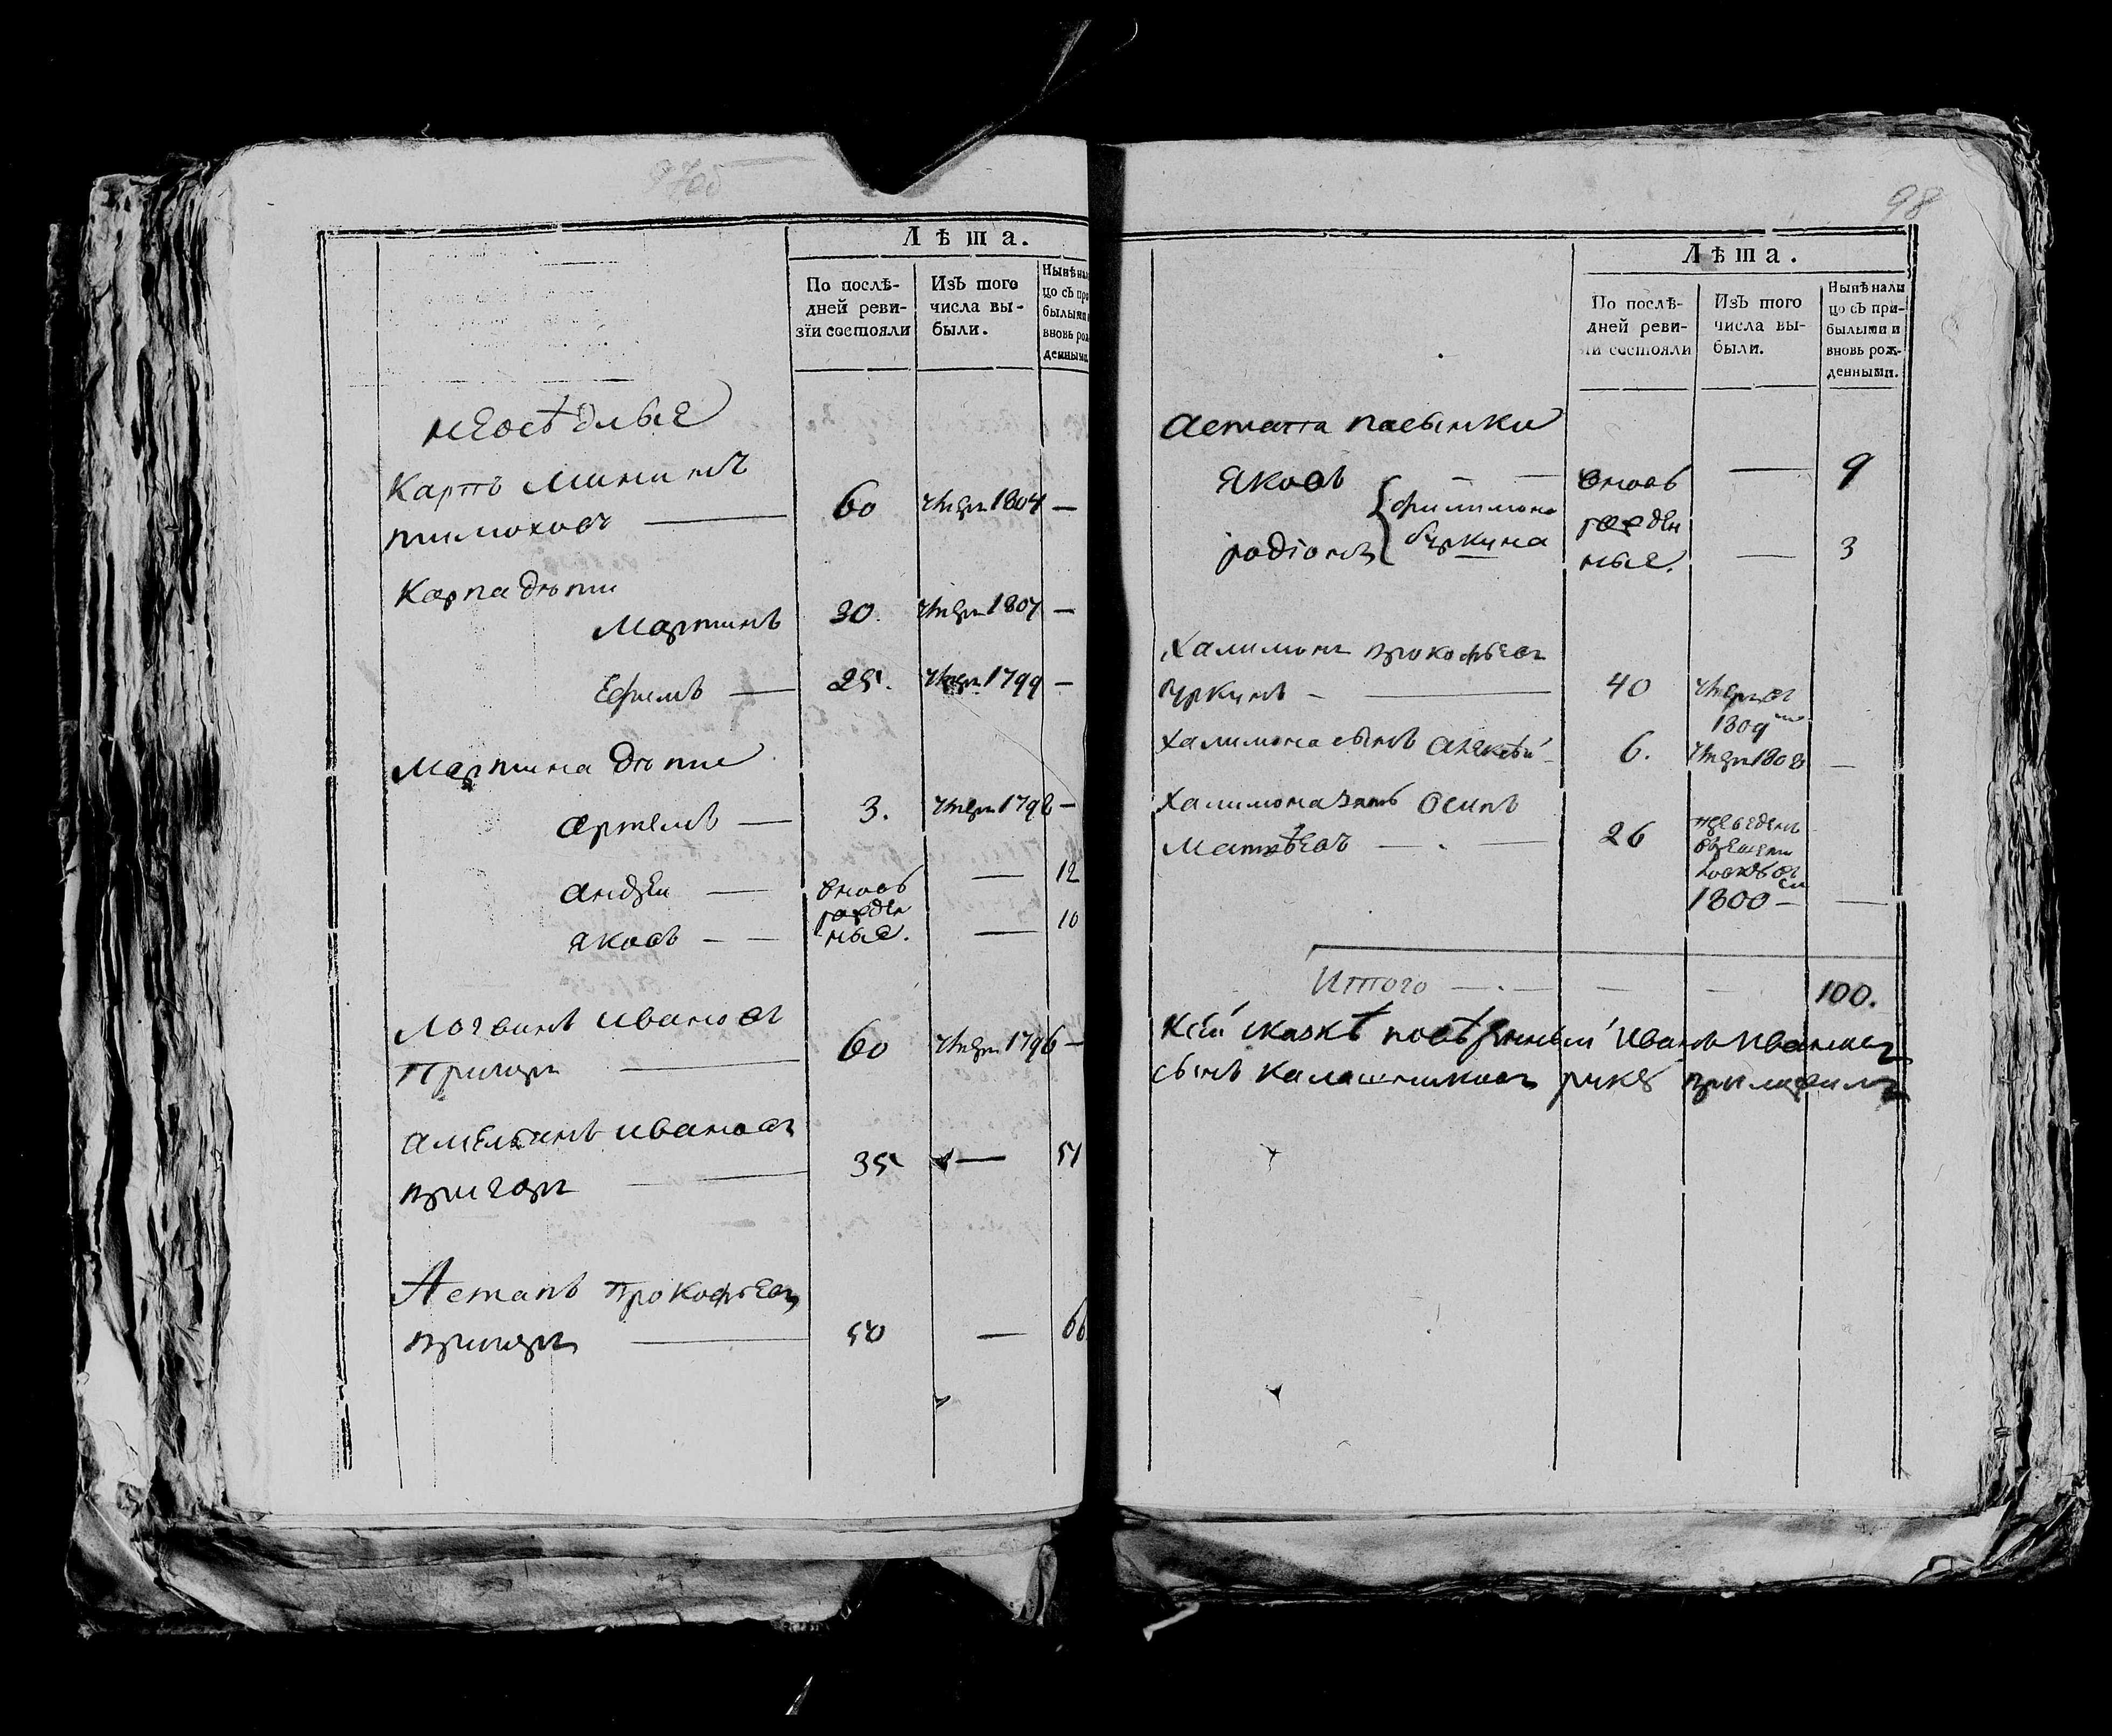 97об
Лѣта.
По послѣ-
дней реви-
зїи состояли
Изъ того
числа вы-
были.
Нынѣ нали
цо съ при
былыми и
вновь рож
денными.
неосѣдлые
Карпъ мининъ
тимоховъ — 60 умеръ 1804 —
Карпа дѣти
Мартинъ 30. умеръ 1807 —
Ефимъ — 25. умеръ 1799 —
Мартина дѣти
артемъ — 3. умеръ 1798 —
андреи — вновь — 12
рожден
яковъ — — ные. — 10
Логвинъ ивановъ
60 умеръ 1796 —
Амельянъ ивановъ
35 — 51
Астапъ прокофьевъ
50 — 66
98
Лѣта.
По послѣ-
дней реви-
зїи состояли
Изъ того
числа вы-
были.
Нынѣ нали
цо съ при-
былыми и
вновь рож-
денными.
Астапа пасынки
яковъ — вновь — 9
филимона
рожден
родїонъ буркина ные. — 3
Халимонъ прокофьевъ
буркинъ — 40 умеръ въ
1809мъ
Халимона сынъ алексѣй 6. умеръ 1808 —
Халимона зять осипъ
Матвѣевъ — . — 26
1800 — —
Итого — . — — — 100.
К сей сказкѣ повѣренный Иванъ Ивановъ
сынъ Калашниковъ руку приложилъ